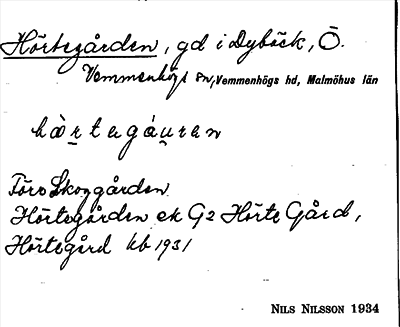 Hörtegården, gd i Dybäck, Ö.
Vemmenhögs sn, Vemmenhögs hd, Malmöhus län
hàṛtagáu̯ran
Förr Skoggården
Hörtegården ek G2 Hörte Gård,
Hörtegård kb 1931
NILS NILSSON 1934